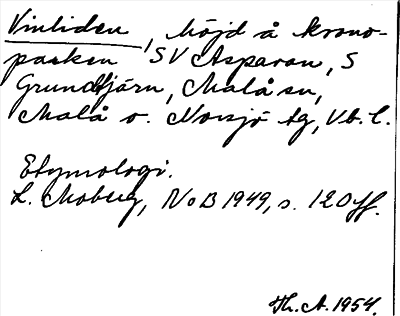 Vinliden, höjd å krono-
parken SV Asparan, S
Grundtjärn, Malå sn,
Malå o. Norsjö tg, V.b.l.
Etymologi.
L. Moberg, NoB 1949, s. 120ff.
Th. A. 1954.